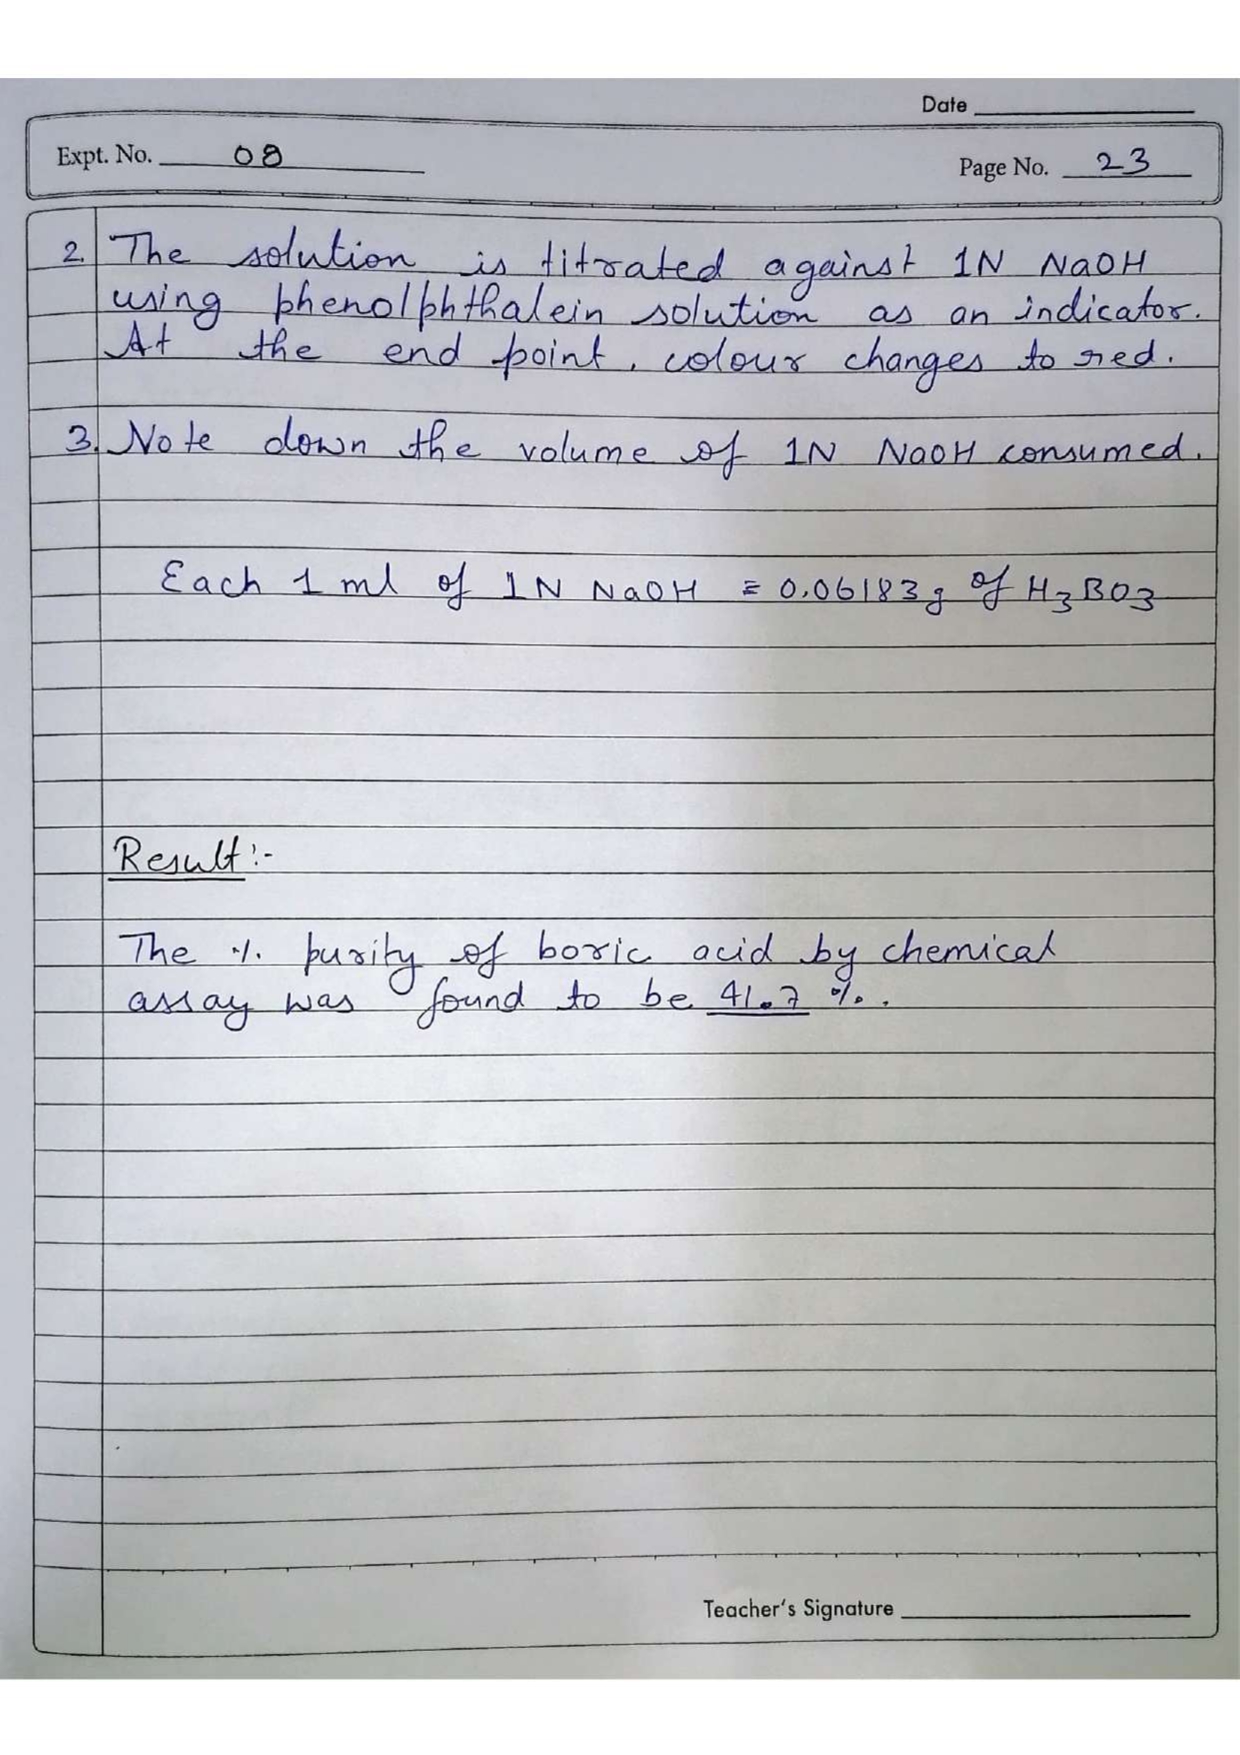 Date
Expt. No. 08
Page No. 23
2. The solution is titrated against 1N NaOH
using phenolphthalein solution as an indicator.
At the end point, colour changes to red.
3. Note down the volume of 1N NaOH consumed.
Each 1 ml of 1N NaOH ≡ 0.06183g of H3BO3
Result:-
The % purity of boric acid by chemical
assay was found to be 41.7 %.
Teacher's Signature